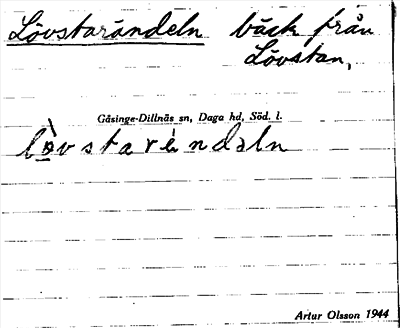 Lövstarändeln bäck från
Lövstan,
Gåsinge-Dillnäs sn, Daga hd, Söd. l.
lø̀vstaréndəln
Artur Olsson 1944